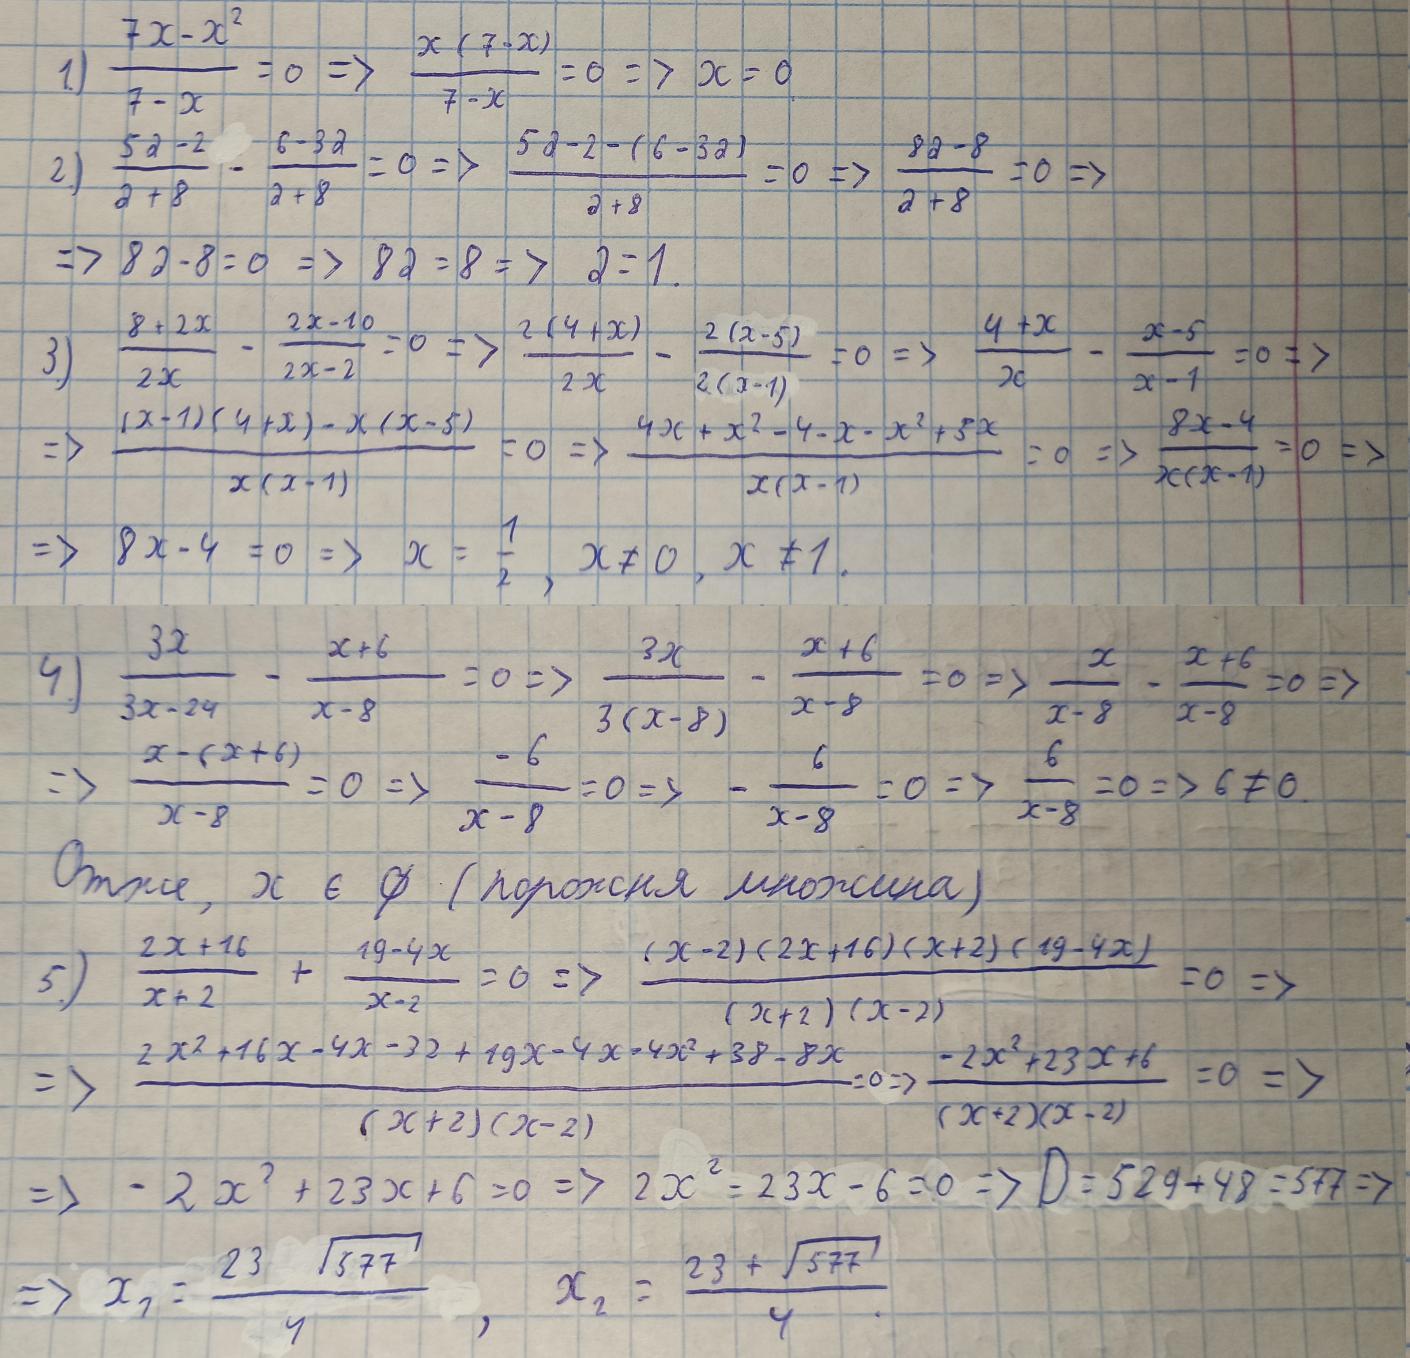 1.) (7x - x²)/(7 - x) = 0 => x(7-x)/(7-x) = 0 => x = 0
2.) (5a-2)/(a+8) - (6-3a)/(a+8) = 0 => (5a-2-(6-3a))/(a+8) = 0 => (8a-8)/(a+8) = 0 =>
=> 8a-8=0 => 8a=8 => a=1.
3) (8+2x)/(2x) - (2x-10)/(2x-2) = 0 => 2(4+x)/(2x) - 2(x-5)/(2(x-1)) = 0 => (4+x)/x - (x-5)/(x-1) = 0 =>
=> ((x-1)(4+x)-x(x-5))/(x(x-1)) = 0 => (4x+x²-4-x-x²+5x)/(x(x-1)) = 0 => (8x-4)/(x(x-1)) = 0 =>
=> 8x-4 = 0 => x = 1/2, x≠0, x≠1.
4.) 3x/(3x-24) - (x+6)/(x-8) = 0 => 3x/(3(x-8)) - (x+6)/(x-8) = 0 => x/(x-8) - (x+6)/(x-8) = 0 =>
=> (x-(x+6))/(x-8) = 0 => -6/(x-8) = 0 => - 6/(x-8) = 0 => 6/(x-8) = 0 => 6≠0.
Отже, x ∈ ∅ (порожня множина)
5.) (2x+16)/(x+2) + (19-4x)/(x-2) = 0 => (x-2)(2x+16)(x+2)(19-4x)/((x+2)(x-2)) = 0 =>
=> (2x²+16x-4x-32+19x-4x-4x²+38-8x)/((x+2)(x-2)) =0=> (-2x²+23x+6)/((x+2)(x-2)) = 0 =>
=> -2x²+23x+6=0 => 2x²=23x-6=0 => D=529+48=577 =>
=> x₁ = (23 √577)/4, x₂ = (23+√577)/4.